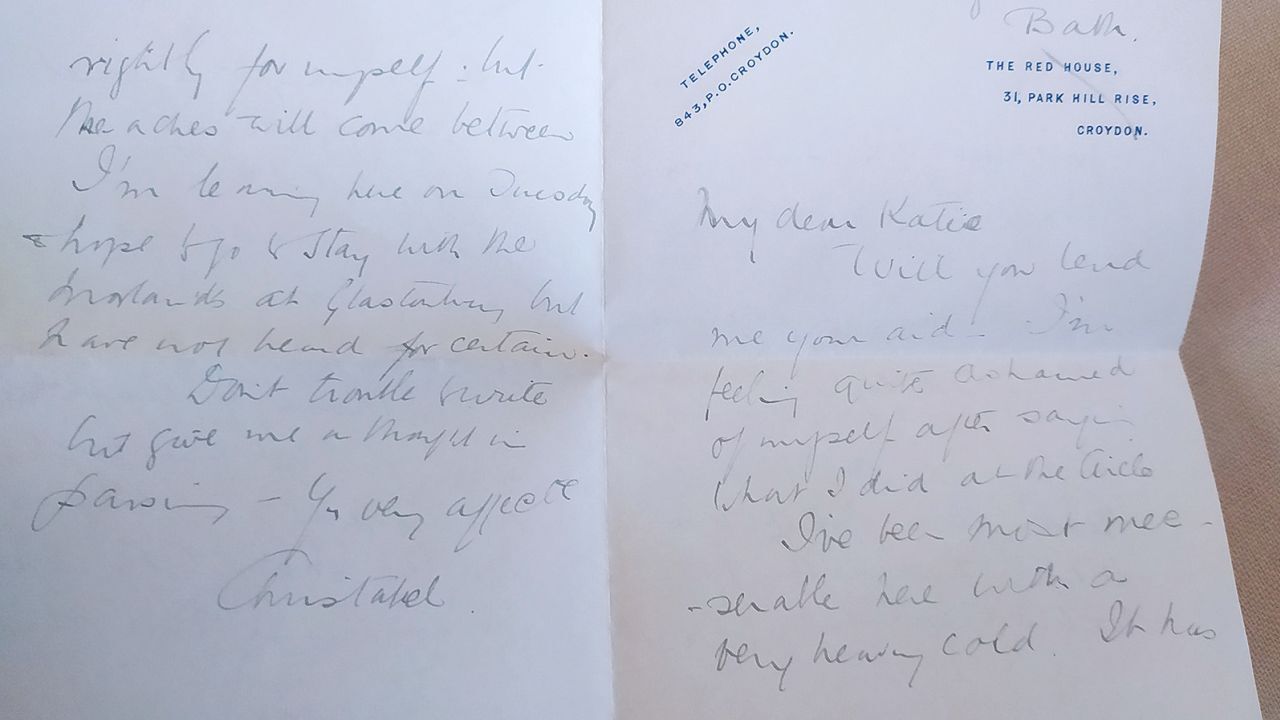 Bath.
TELEPHONE,
843, P.O. CROYDON.
THE RED HOUSE,
31, PARK HILL RISE,
CROYDON.
My dear Katie
Will you lend
me your aid – I'm
feeling quite ashamed
of myself after saying
what I did at the Circle
I've been most mee-
-serable here with a
very heavy cold. It has
rightly for myself : but
the aches will come between
I'm leaving here on Tuesday
& hope to go & stay with the
at Glastonbury but
have not heard for certain.
Don't trouble to write
but give me a thought in
passing – Yr very affecte
Christabel.